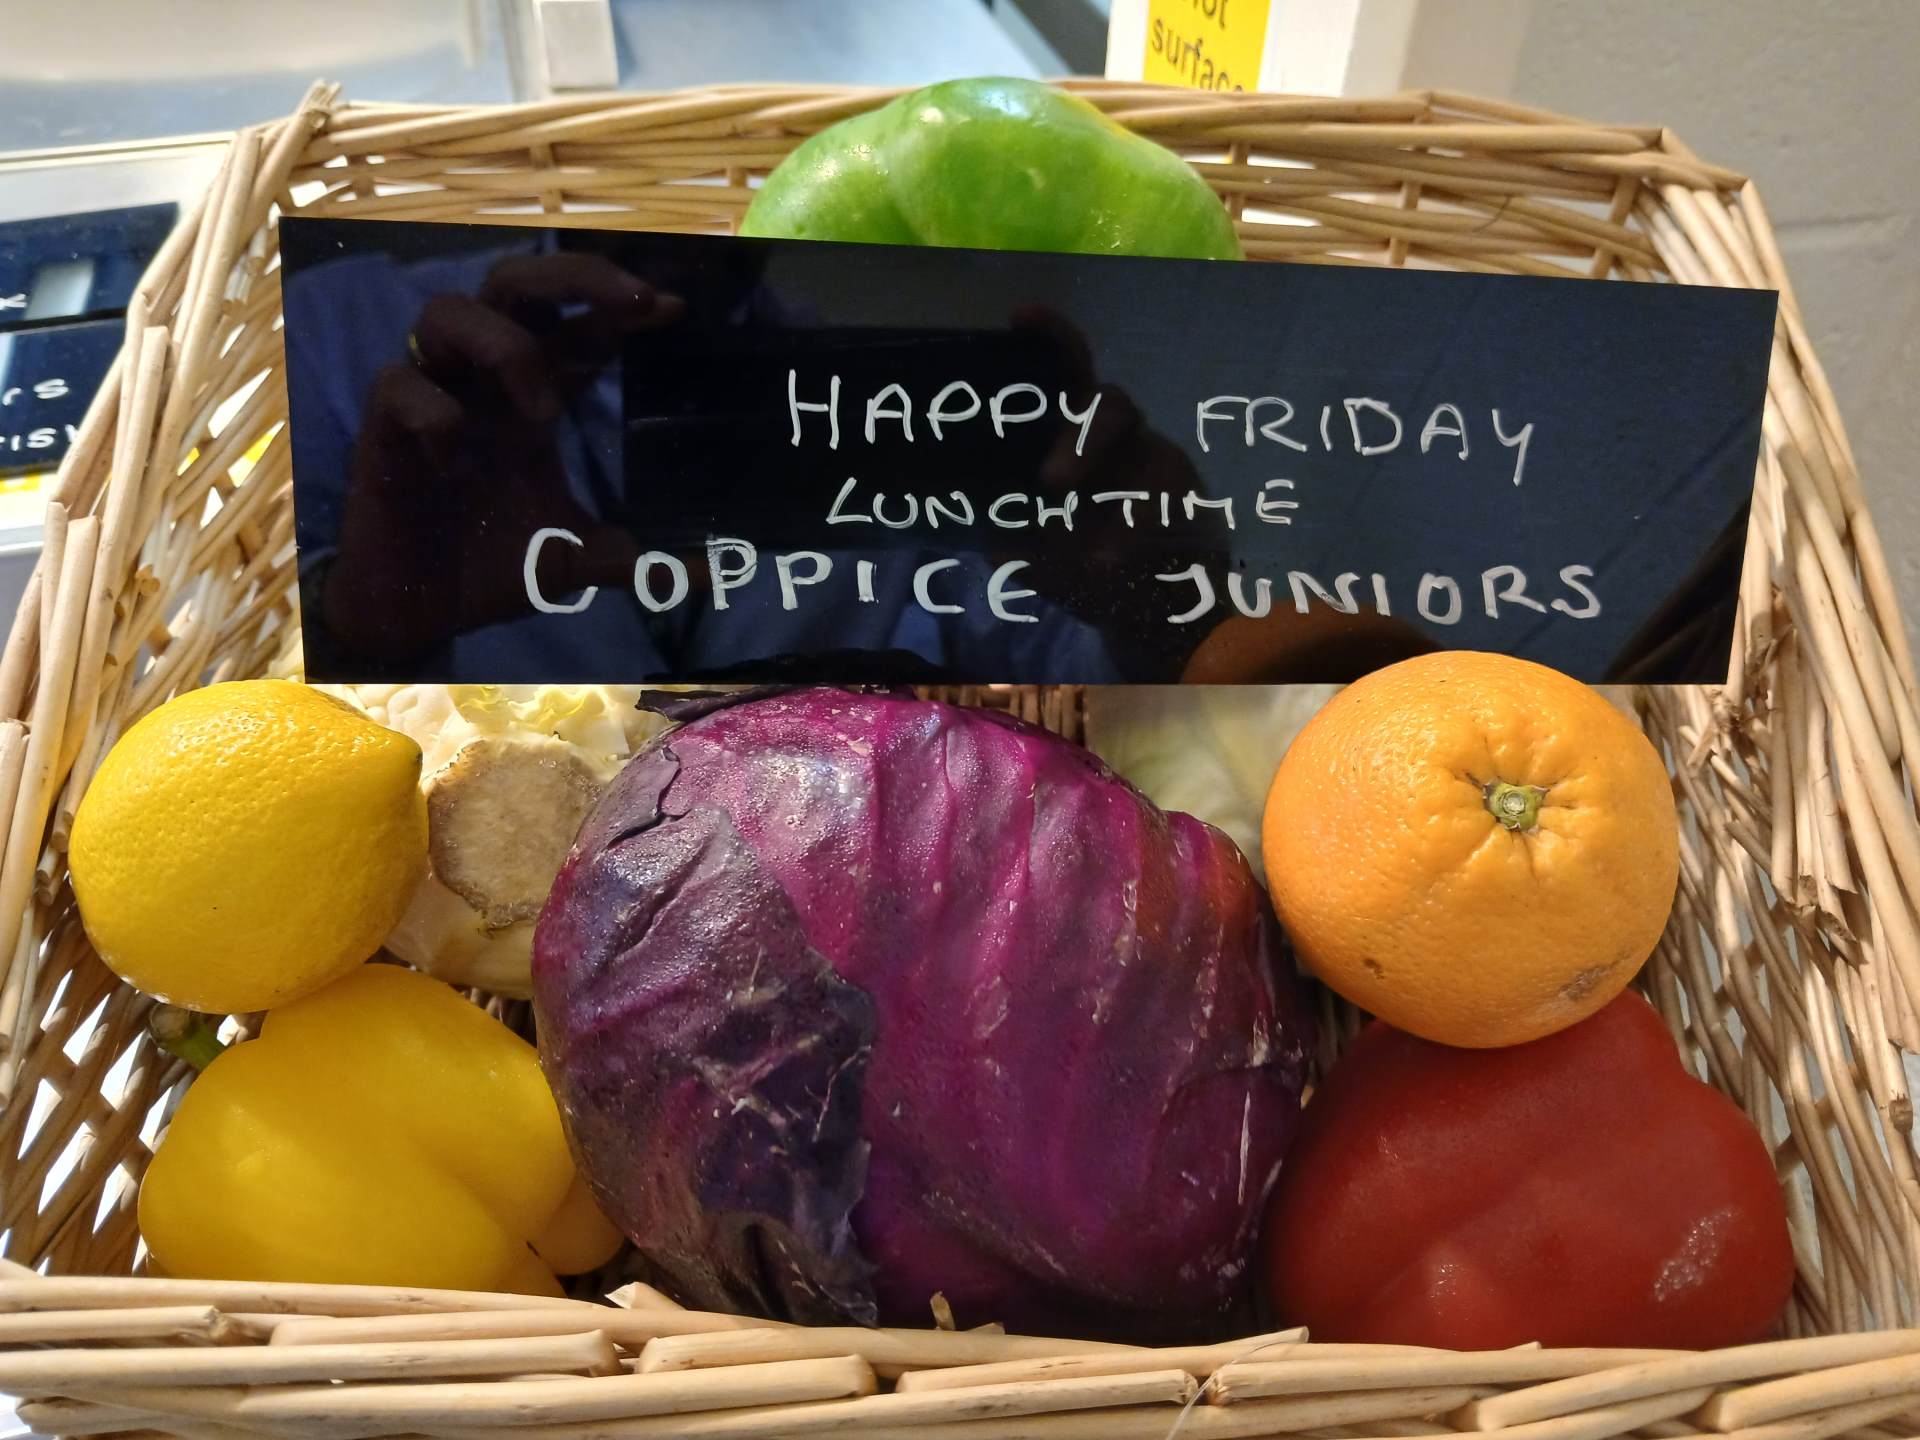 surface
HAPPY FRIDAY
LUNCHTIME
COPPICE JUNIORS